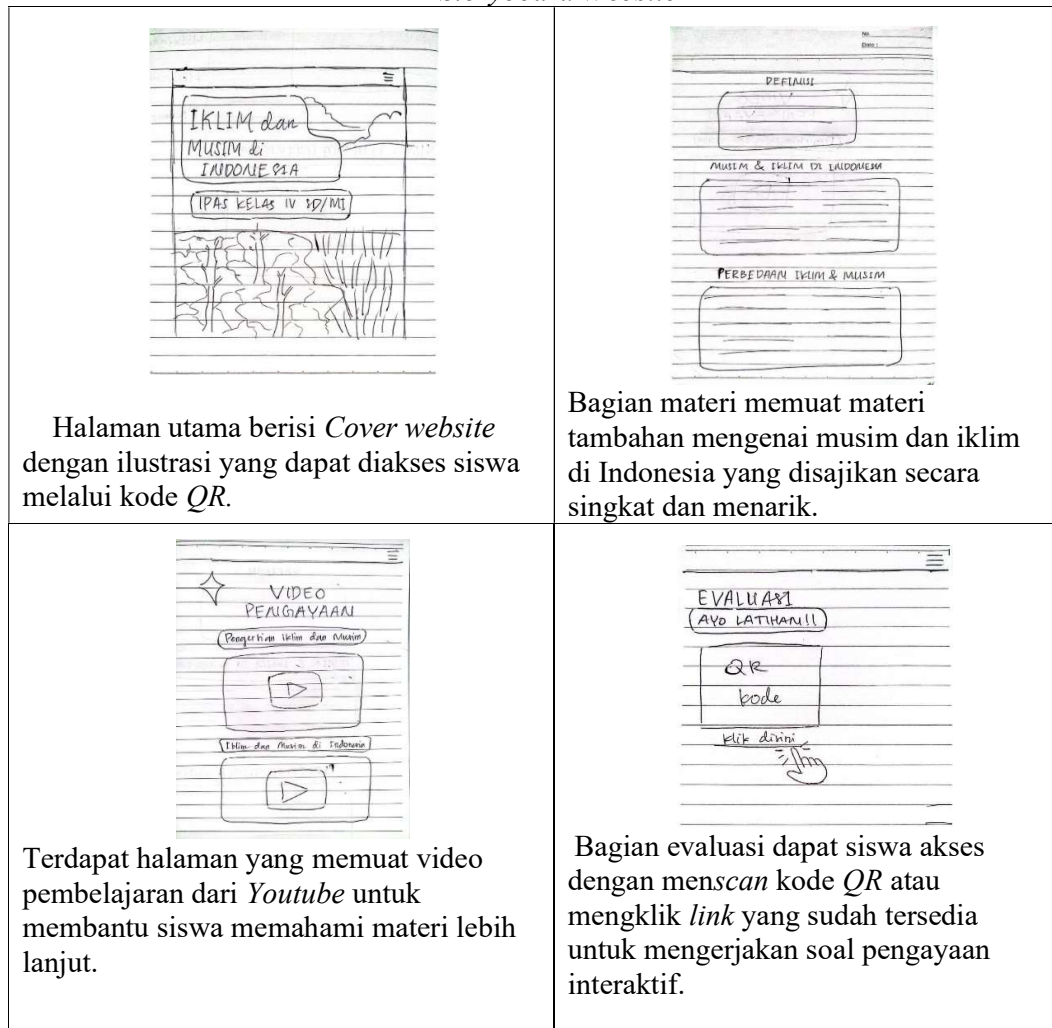 Storyboard Website
IKLIM dan
MUSIM di
INDONESIA
IPAS KELAS IV SD/MI
Halaman utama berisi Cover website
dengan ilustrasi yang dapat diakses siswa
melalui kode QR.
No.
Date :
DEFINISI
MUSIM & IKLIM DI INDONESIA
PERBEDAAN IKLIM & MUSIM
Bagian materi memuat materi
tambahan mengenai musim dan iklim
di Indonesia yang disajikan secara
singkat dan menarik.
VIDEO
PENGAYAAN
Pengertian Iklim dan Musim
Iklim dan Musim di Indonesia
Terdapat halaman yang memuat video
pembelajaran dari Youtube untuk
membantu siswa memahami materi lebih
lanjut.
EVALUASI
AYO LATIHAN!!
QR
kode
klik disini
Bagian evaluasi dapat siswa akses
dengan menscan kode QR atau
mengklik link yang sudah tersedia
untuk mengerjakan soal pengayaan
interaktif.